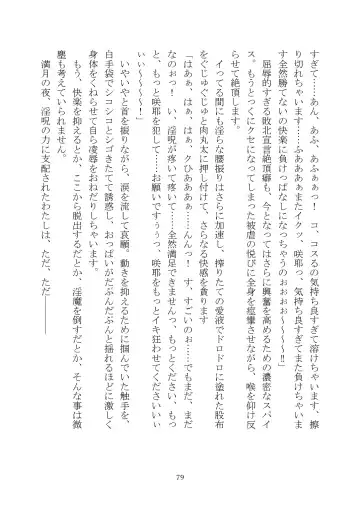 すぎて……あん、あふ、あふぁぁっ！　コ、コスるの気持ち良すぎて溶けちゃいます、擦
り切れちゃいます……ふああああぁまたイクッ、咲耶っ、気持ち良すぎてまた負けちゃいま
す全然勝てないの快楽に負けっぱなしになっちゃうのおおおぉ～～～～～!!」
屈辱的すぎる敗北宣言絶頂郷も、今となってはさらに興奮を高めるための濃密なスパイ
ス。もうとっくにクセになってしまった被虐の悦びに全身を痙攣させながら、喉を仰け反
らせて絶頂します。
イってる間にも淫らな腰振りはさらに加速し、搾りたての愛液でドロドロにした股布
をぐじゅぐじゅと肉丸太に押し付けて、さらなる快感を貪ります
「はぁぁ、はぁ、はぁ、クひあああぁ……んんっ！　す、すごいのぉ……でもまだ、まだ
なのぉっ！　い、淫呪が疼いて疼いて……全然満足できませんっ、もっとください、もっ
ともっと咲耶を犯して……お願いですぅぅっ、咲耶をもっとイキ狂わせてくださいいぃ
いぃ～～～～！」
いやいやと首を振りながら、涙を流して哀願。動きを抑えるために掴んでいた触手を、
白手袋でシコシコとシゴきたてて誘惑し、おっぱいがだぷんだぷんと揺れるほどに激しく
身体をくねらせて自ら凌辱をおねだりしちゃいます。
もう、快楽を抑えるとか、ここから脱出するだとか、淫魔を倒すだとか、そんな事は微
塵も考えていられません。
満月の夜、淫呪の力に支配されたわたしは、ただ、ただ――
79